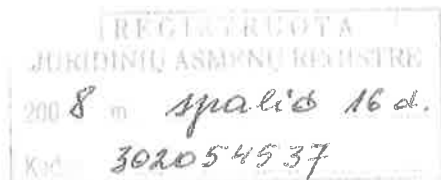 REGISTRUOTA
JURIDINIŲ ASMENŲ REGISTRE
2008 m spalio 16 d.
Kod 302054537